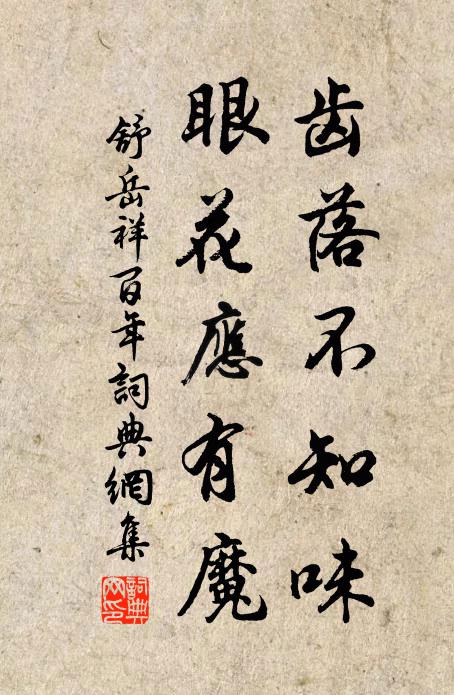 齿落不知味
眼花應有魔
舒岳祥百年詞典網集
詞典網印